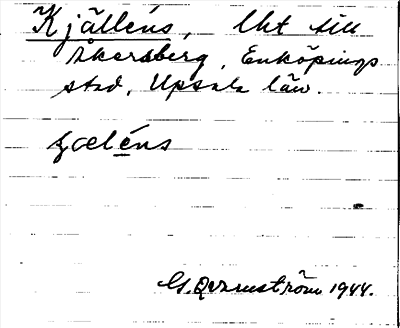 Kjälléns, lht till
Åkersberg, Enköpings
stad, Upsala län.
çæléns
G. Qvarnström 1944.